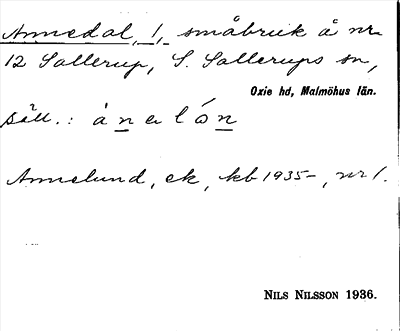 Annedal, 1, småbruk å nr
12 Sallerup, S. Sallerups sn,
Oxie hd, Malmöhus län.
säll.:
Annelund, ek, kb 1935–, nr 1.
NILS NILSSON 1936.